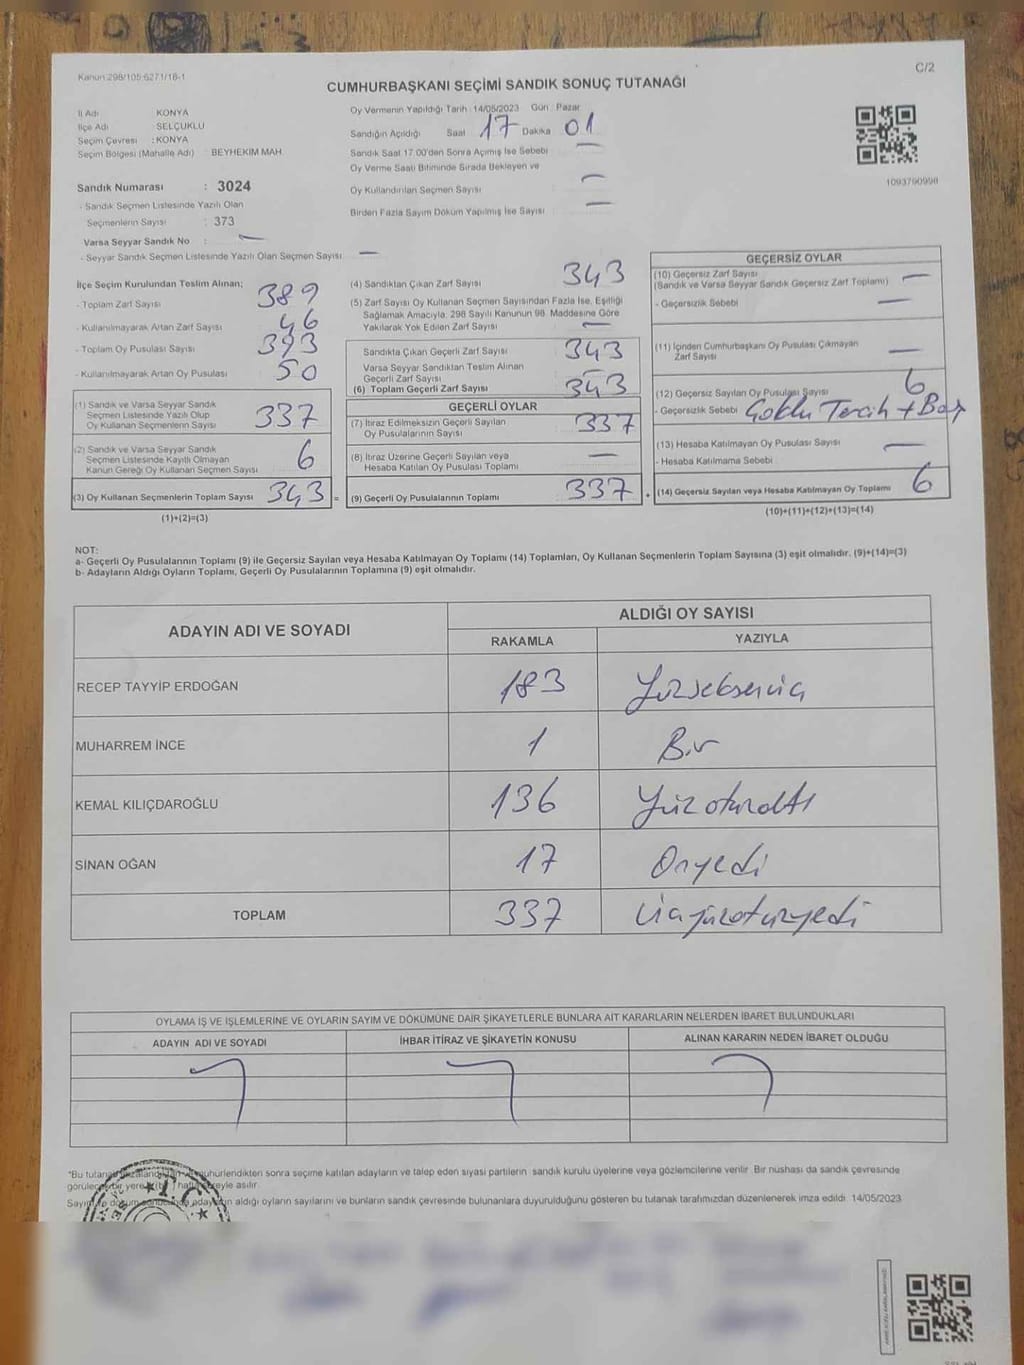 Kanun:298/105-6271/18-1
C/2
CUMHURBAŞKANI SEÇİMİ SANDIK SONUÇ TUTANAĞI
İl Adı KONYA
İlçe Adı SELÇUKLU
Seçim Çevresi : KONYA
Seçim Bölgesi (Mahalle Adı) BEYHEKİM MAH.
Sandık Numarası : 3024
- Sandık Seçmen Listesinde Yazılı Olan
Seçmenlerin Sayısı : 373
Varsa Seyyar Sandık No : —
- Seyyar Sandık Seçmen Listesinde Yazılı Olan Seçmen Sayısı —
Oy Vermenin Yapıldığı Tarih 14/05/2023 Gün : Pazar
Sandığın Açıldığı Saat 17 Dakika 01
Sandık Saat 17.00'den Sonra Açımış İse Sebebi —
Oy Verme Saati Bitiminde Sırada Bekleyen ve
Oy Kullandırılan Seçmen Sayısı —
Birden Fazla Sayım Döküm Yapılmış İse Sayısı —
1093790998
İlçe Seçim Kurulundan Teslim Alınan;
- Toplam Zarf Sayısı 389
- Kullanılmayarak Artan Zarf Sayısı 46
- Toplam Oy Pusulası Sayısı 393
- Kullanılmayarak Artan Oy Pusulası 50
(1) Sandık ve Varsa Seyyar Sandık
Seçmen Listesinde Yazılı Olup
Oy Kullanan Seçmenlerin Sayısı 337
(2) Sandık ve Varsa Seyyar Sandık
Seçmen Listesinde Kayıtlı Olmayan
Kanun Gereği Oy Kullanan Seçmen Sayısı 6
(3) Oy Kullanan Seçmenlerin Toplam Sayısı 343 =
(1)+(2)=(3)
(4) Sandıktan Çıkan Zarf Sayısı 343
(5) Zarf Sayısı Oy Kullanan Seçmen Sayısından Fazla İse, Eşitliği
Sağlamak Amacıyla, 298 Sayılı Kanunun 98. Maddesine Göre
Yakılarak Yok Edilen Zarf Sayısı —
Sandıkta Çıkan Geçerli Zarf Sayısı 343
Varsa Seyyar Sandıktan Teslim Alınan
Geçerli Zarf Sayısı —
(6) Toplam Geçerli Zarf Sayısı 343
GEÇERLİ OYLAR
(7) İtiraz Edilmeksizin Geçerli Sayılan
Oy Pusulalarının Sayısı 337
(8) İtiraz Üzerine Geçerli Sayılan veya
Hesaba Katılan Oy Pusulası Toplamı —
(9) Geçerli Oy Pusulalarının Toplamı 337 +
GEÇERSİZ OYLAR
(10) Geçersiz Zarf Sayısı —
(Sandık ve Varsa Seyyar Sandık Geçersiz Zarf Toplamı)
- Geçersizlik Sebebi —
(11) İçinden Cumhurbaşkanı Oy Pusulası Çıkmayan
Zarf Sayısı —
(12) Geçersiz Sayılan Oy Pusulası Sayısı 6
- Geçersizlik Sebebi Çoklu Tercih + Boş
(13) Hesaba Katılmayan Oy Pusulası Sayısı —
- Hesaba Katılmama Sebebi
(14) Geçersiz Sayılan veya Hesaba Katılmayan Oy Toplamı 6
(10)+(11)+(12)+(13)=(14)
NOT:
a- Geçerli Oy Pusulalarının Toplamı (9) ile Geçersiz Sayılan veya Hesaba Katılmayan Oy Toplamı (14) Toplamları, Oy Kullanan Seçmenlerin Toplam Sayısına (3) eşit olmalıdır. (9)+(14)=(3)
b- Adayların Aldığı Oyların Toplamı, Geçerli Oy Pusulalarının Toplamına (9) eşit olmalıdır.
ADAYIN ADI VE SOYADI ALDIĞI OY SAYISI
RAKAMLA YAZIYLA
RECEP TAYYİP ERDOĞAN 183
MUHARREM İNCE 1 Bir
KEMAL KILIÇDAROĞLU 136 Yüzotuzaltı
SİNAN OĞAN 17 Onyedi
TOPLAM 337 üçyüzotuzyedi
OYLAMA İŞ VE İŞLEMLERİNE VE OYLARIN SAYIM VE DÖKÜMÜNE DAİR ŞİKAYETLERLE BUNLARA AİT KARARLARIN NELERDEN İBARET BULUNDUKLARI
ADAYIN ADI VE SOYADI İHBAR İTİRAZ VE ŞİKAYETİN KONUSU ALINAN KARARIN NEDEN İBARET OLDUĞU
*Bu tutanak mühürlendikten sonra seçime katılan adayların ve talep eden siyasi partilerin sandık kurulu üyelerine veya gözlemcilerine verilir. Bir nushası da sandık çevresinde
asılır.
aldığı oyların sayılarını ve bunların sandık çevresinde bulunanlara duyurulduğunu gösteren bu tutanak tarafımızdan düzenlenerek imza edildi. 14/05/2023
T.C.